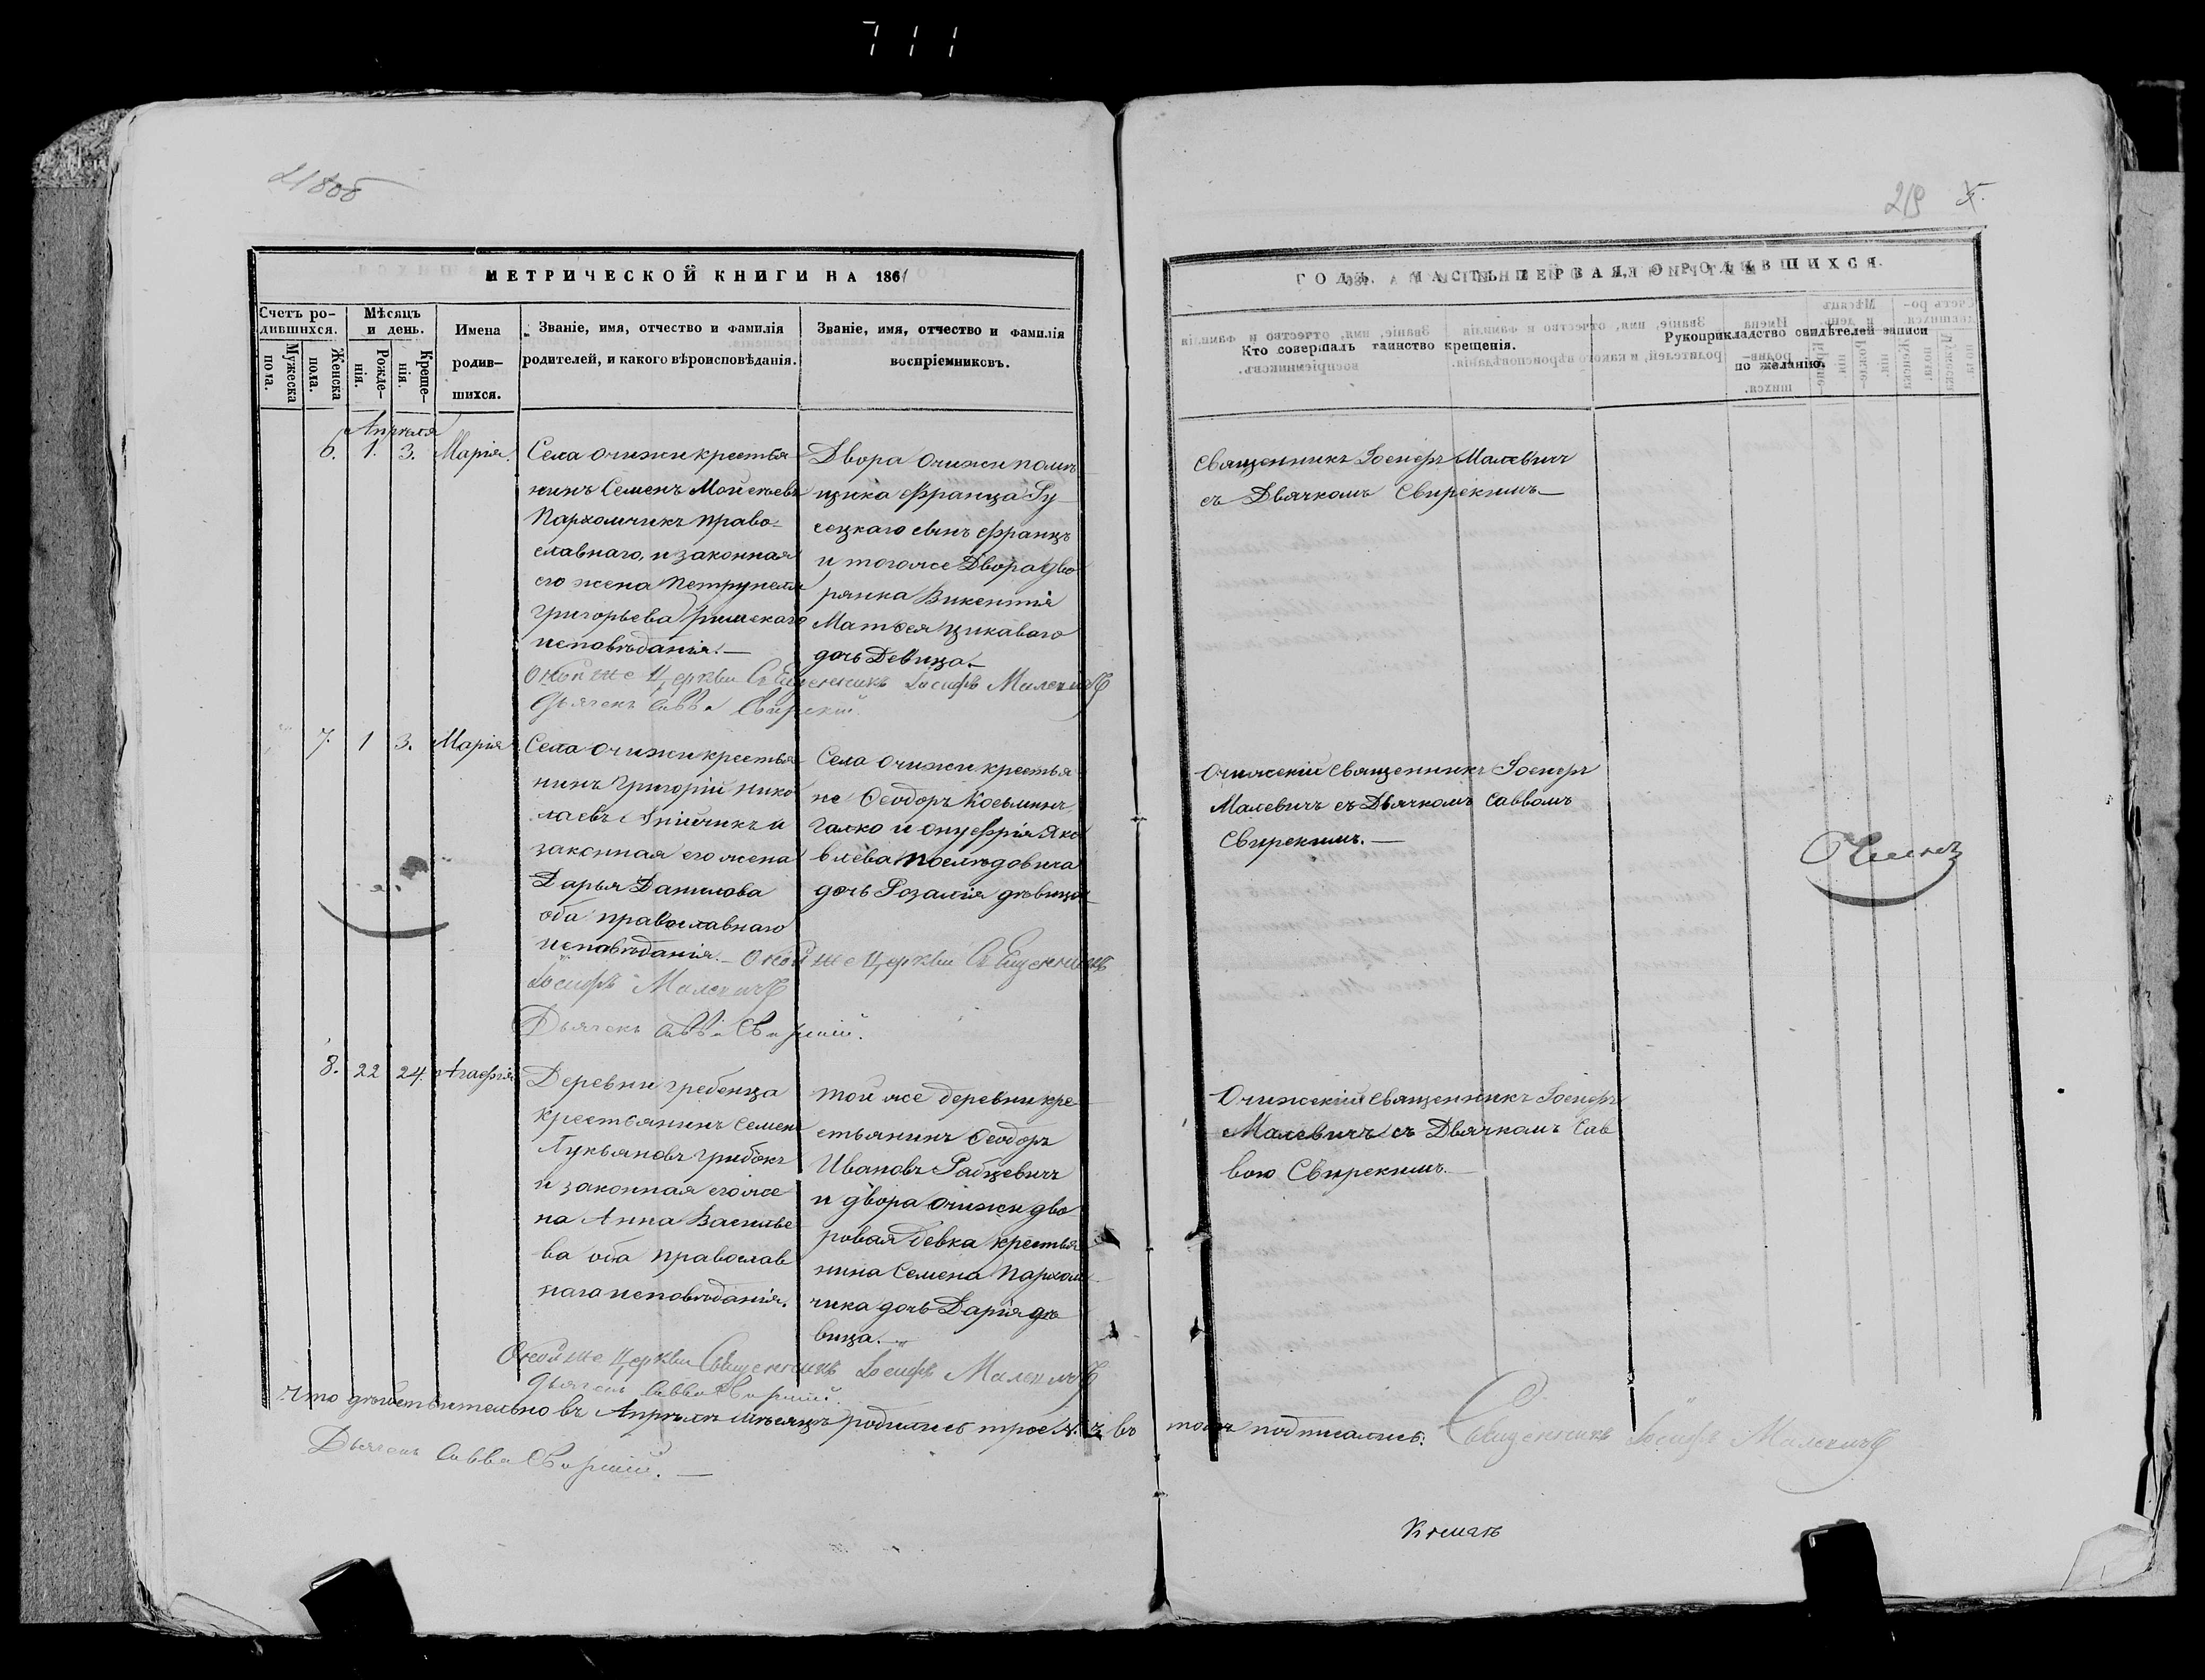 711
218об
219
МЕТРИЧЕСКОЙ КНИГИ НА 1861
ГОДЪ, ЧАСТЬ ПЕРВАЯ, О РОДИВШИХСЯ.
Счетъ ро-
дившихся.
Мужеска
пола.
Женска
пола.
Мѣсяцъ
и день.
Рожде-
нія.
Креще-
нія.
Имена
родив-
шихся.
Званіе, имя, отчество и фамилія
родителей, и какого вѣроисповѣданія.
Званіе, имя, отчество и фамилія
воспріемниковъ.
Кто совершалъ таинство крещенія.
Рукоприкладство свидѣтелей записи
по желанію.
Апреля
6. 1. 3. Марія.
Села Очижи крестья
нинъ Семенъ Мойсеевъ
Пархомчикъ право-
славнаго, и законная
его жена Петрунеля
Григорьева римскаго
исповѣданія. —
Двора Очижи помѣ
щика Франца
сецкаго сынъ Францъ
и тогоже Двора дво
рянка Викентія
Матѳея Цикаваго
дочь Девица. —
Священникъ Іосифъ Малевичъ
съ Дьячкомъ Свирскимъ —
Оной же Церкви Священникъ Іосифъ Малевичъ
Дьячекъ Савва Свирскій.
7. 1 3. Марія
Села Очижи крестья
нинъ Григорій Нико
лаевъ и
законная его жена
Дарья Данилова
оба православнаго
исповѣданія. —
Села Очижи крестья
не Ѳеодоръ Косьминъ
Галко и Онуфрія Яко
влева Послѣдовича
дочь Розалія дѣвица —
Очижскій Священникъ Іосифъ
Малевичъ съ Дьячкомъ Саввомъ
Свирскимъ. —
Оной же Церкви Священникъ
Іосифъ Малевичъ
Дьячекъ Савва Свирскій.
8. 22 24. Агафія
Деревни Гребенца
крестьянинъ Семенъ
Лукьяновъ Грибокъ
и законная его же
на Анна Василье
ва оба православ
наго исповѣданія.
Той же деревни кре
стьянинъ Ѳеодоръ
Ивановъ Рабцевичъ
и двора Очижи дво
ровая Девка крестья
нина Семена Пархом
чика дочь Дарія дѣ
вица. —
Очижскій Священникъ Іосифъ
Малевичъ съ Дьячкомъ Сав
вою Свирскимъ. —
Оной же Церкви Священникъ Іосифъ Малевичъ
Дьячекъ Савва Свирскій.
Что дѣйствительно въ Апрѣлѣ мѣсяцѣ родились трое 3. въ томъ подписались: Священникъ Іосифъ Малевичъ
Дьячекъ Савва Свирскій. —